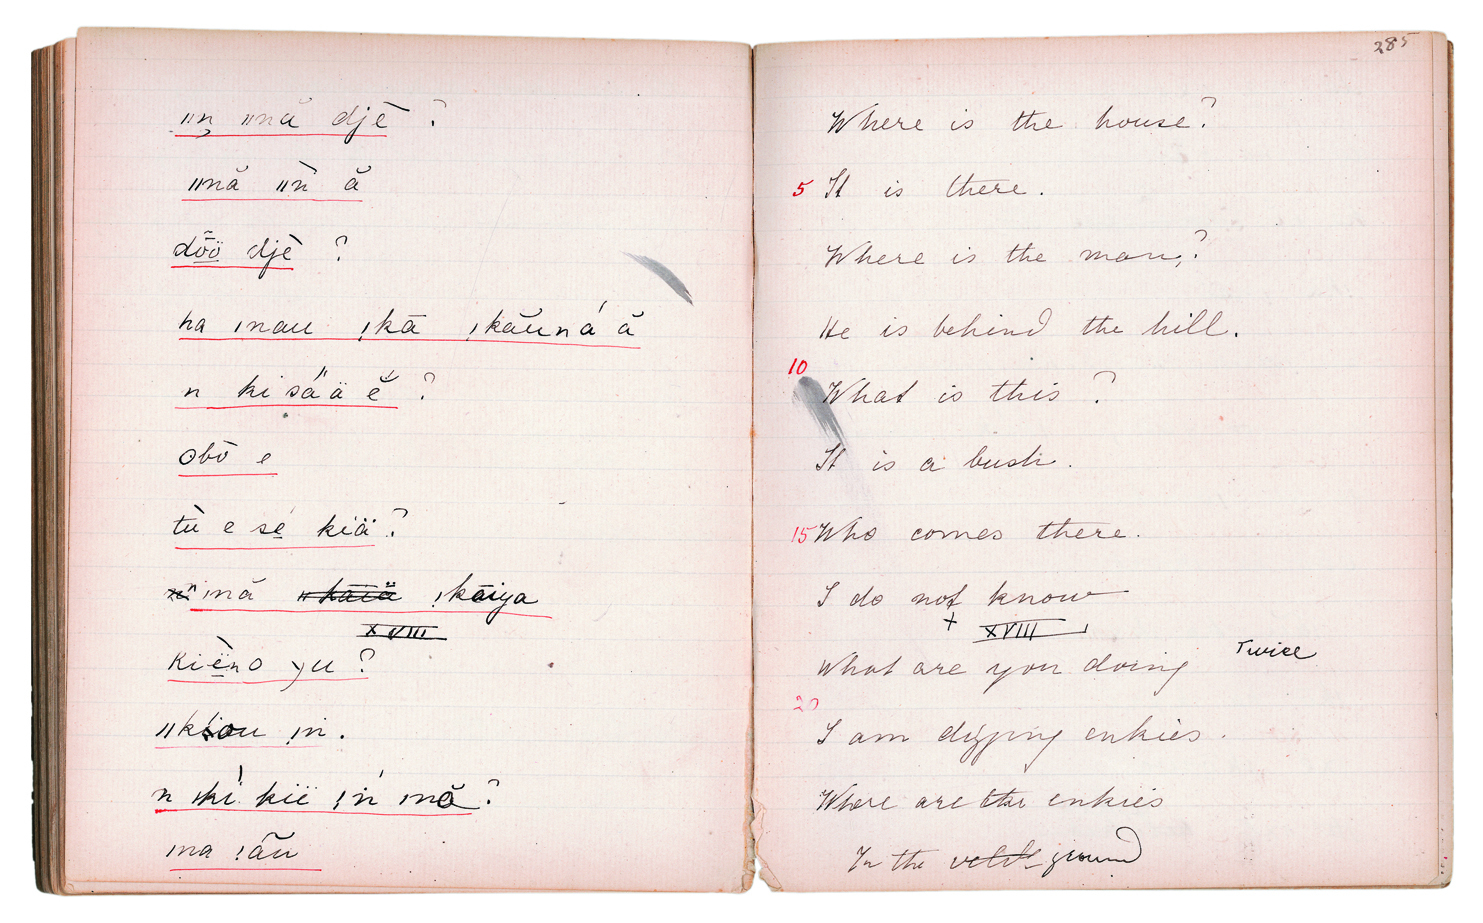 ııṇ ıınă djè ?
ıınă ıın̄̀ ă
dõö djè ?
ha ınau ꞁkā ꞁkăuná ă
n ki sá̋ ä ĕ ?
obō e
tù e sé kiä ?
ınă ꞁkāiya
XVIII
Kiëno yu ?
ıın.
n kië ınă ?
ına !ãu
285
Where is the house?
5 It is there.
Where is the man?
He is behind the hill.
10
What is this ?
It is a bush.
15 Who comes there.
I do not know
+ XVIII
What are you doing Twice
20
I am digging enkies.
Where are the enkies
In the veldt ground